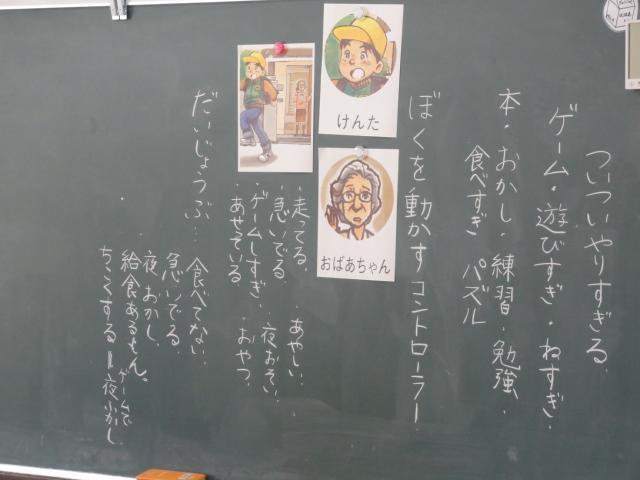 ついついやりすぎる
ゲーム・遊びすぎ・ねすぎ・
本・おかし・練習・勉強・
食べすぎ パズル
ぼくを動かすコントローラー
けんた
おばあちゃん
・走ってる。 ・あやしい。
・急いでる。 ・夜おそい
・ゲームしすぎ・
あせている ・おやつ
だいじょうぶ…
食べてない。
急いでる。
夜おかし
給食あるもん。
ゲームで
ちこくする 夜ふかし